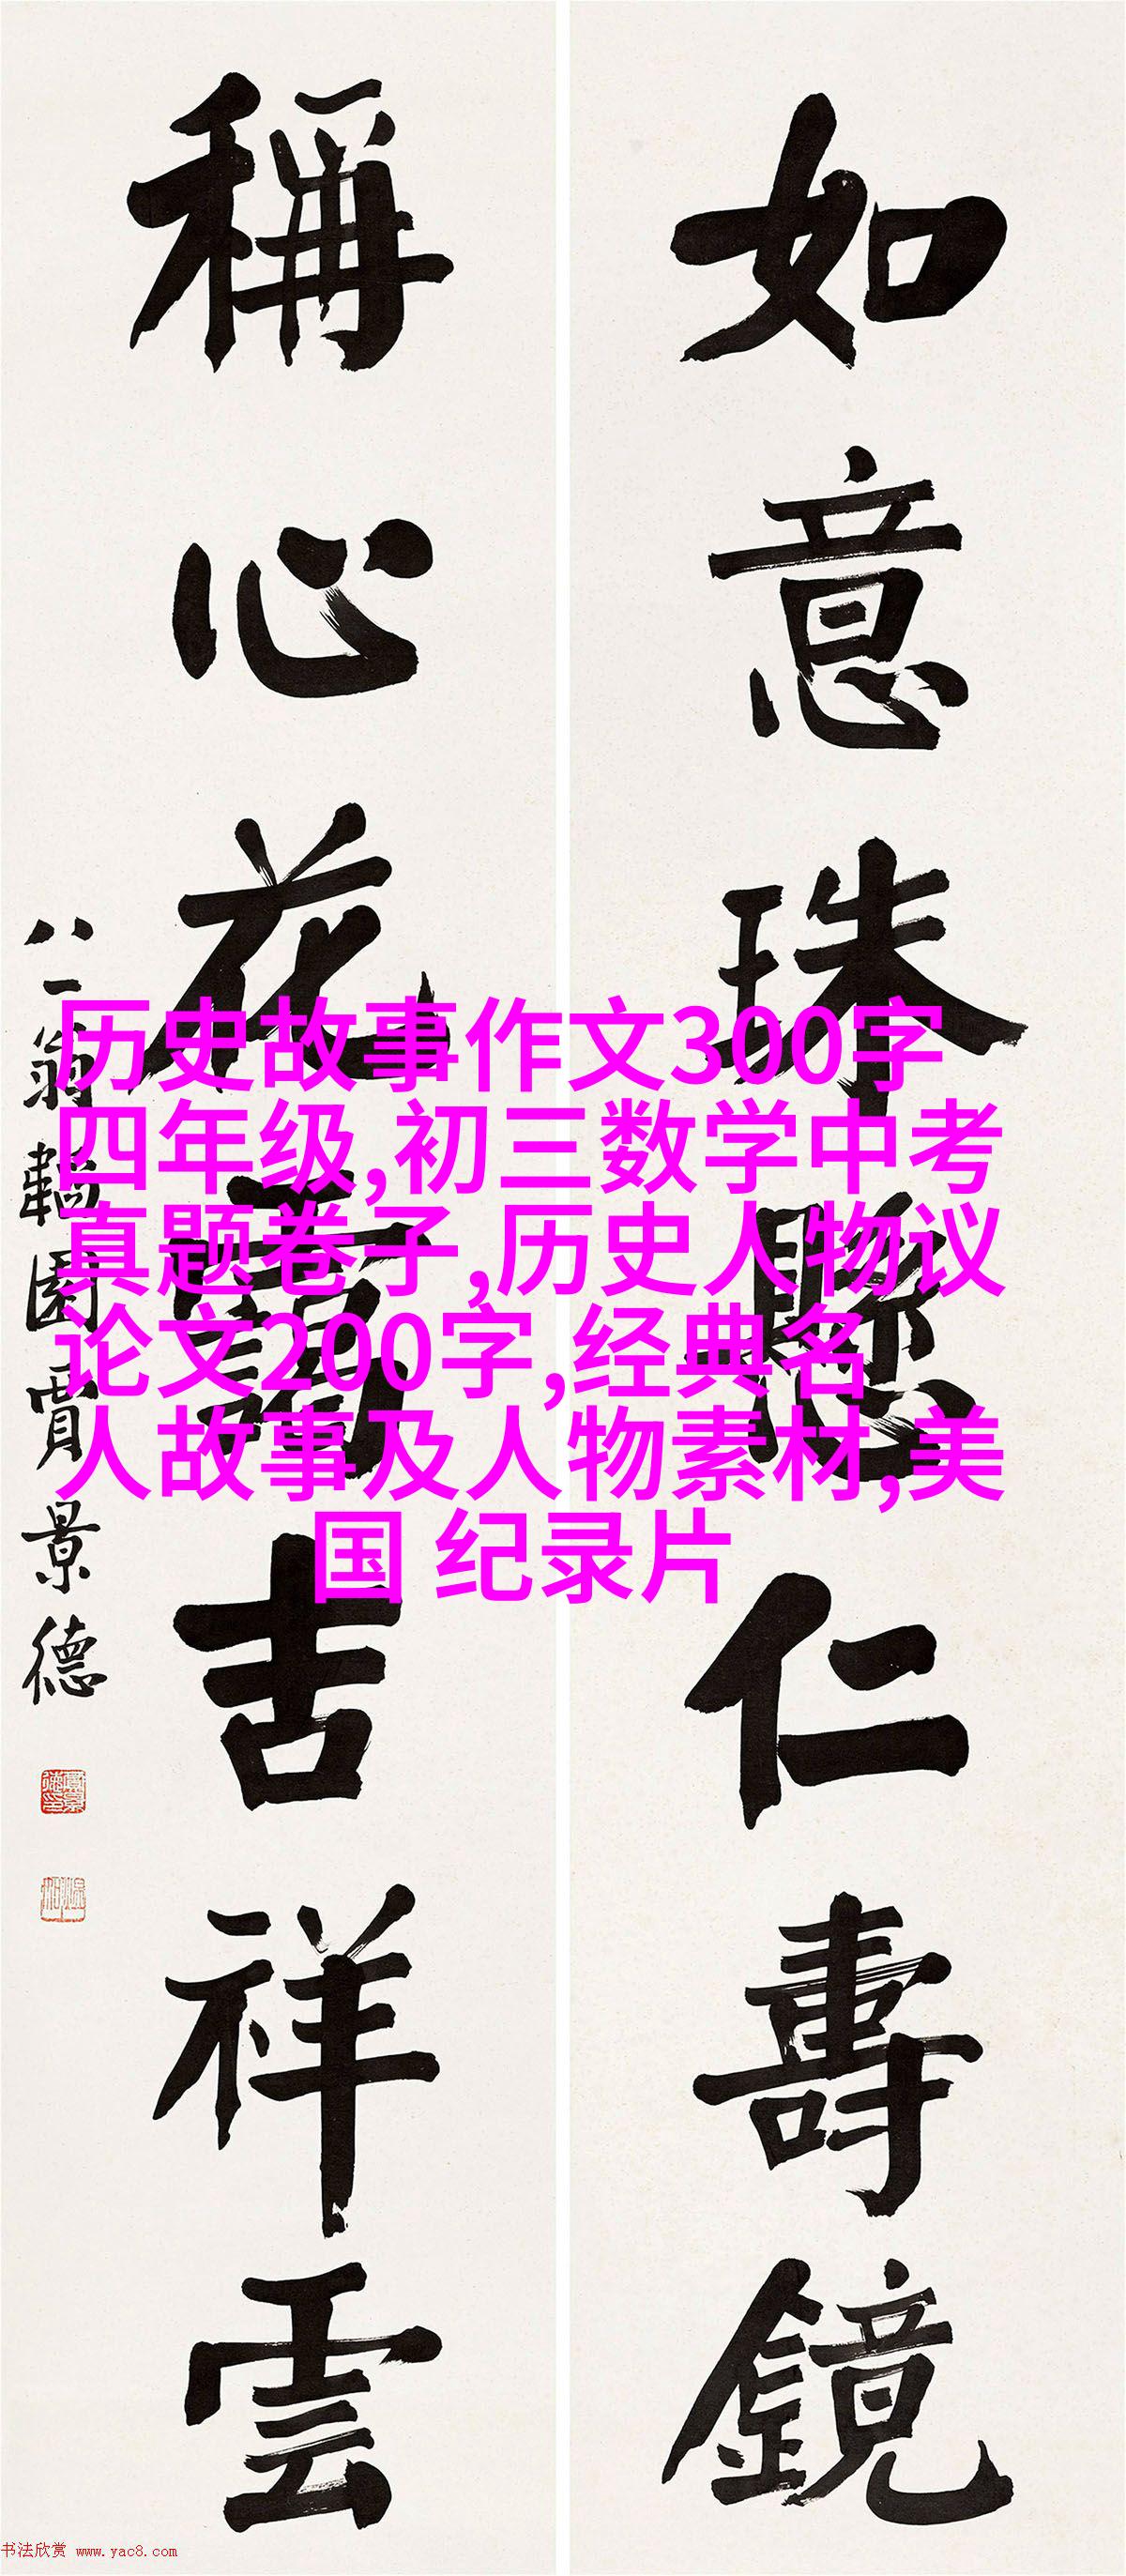 如意珠懸仁壽鏡
稱心花靄吉祥雲
八一翁韜園賈景德
历史故事作文300字
四年级,初三数学中考
真题卷子,历史人物议
论文200字,经典名
人故事及人物素材,美
国 纪录片
书法欣赏 www.yac8.com